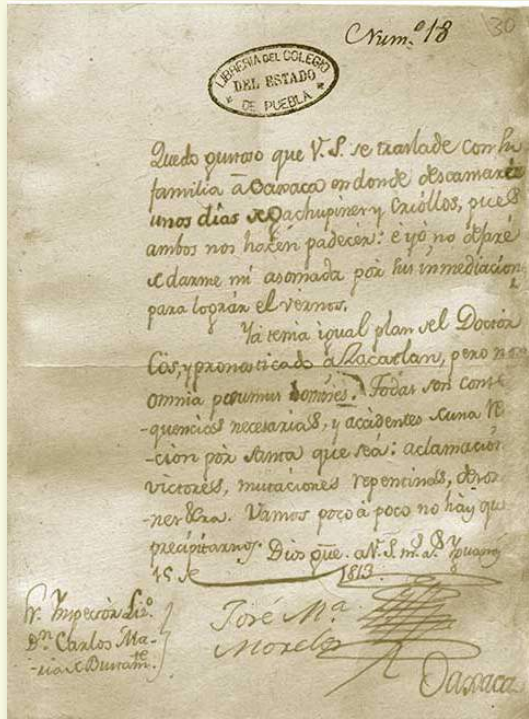 Num.º 18
30
LIBRERIA DEL COLEGIO
DEL ESTADO
DE PUEBLA
Quedo gustoso que V.S. se traslade con su
familia â Oaxaca en donde descansaré
unos dias de Gachupines y Criollos, pues
ambos nos hacen padecer: é yó no dejaré
de darme mi asomada por sus inmediacion
para lográr el vernos.
Ya tenia igual plan del Doctor
Cós, y pronosticado â Zacatlan, pero non
omnia possumus homines. Todas son conse
-quencias necesarias, y accidentes de una
-cion por santa que seá: aclamacion
victores, mutaciones repentinas,
&ra. Vamos poco â poco no háy que
precipitarnos. Dios gue. a V.S. m.s a.s
15 de 1813.
José M.ª
Morelos
Sr. Inspector Liz.º
D.n Carlos Ma-
-ria de Bustam.te
Oaxaca